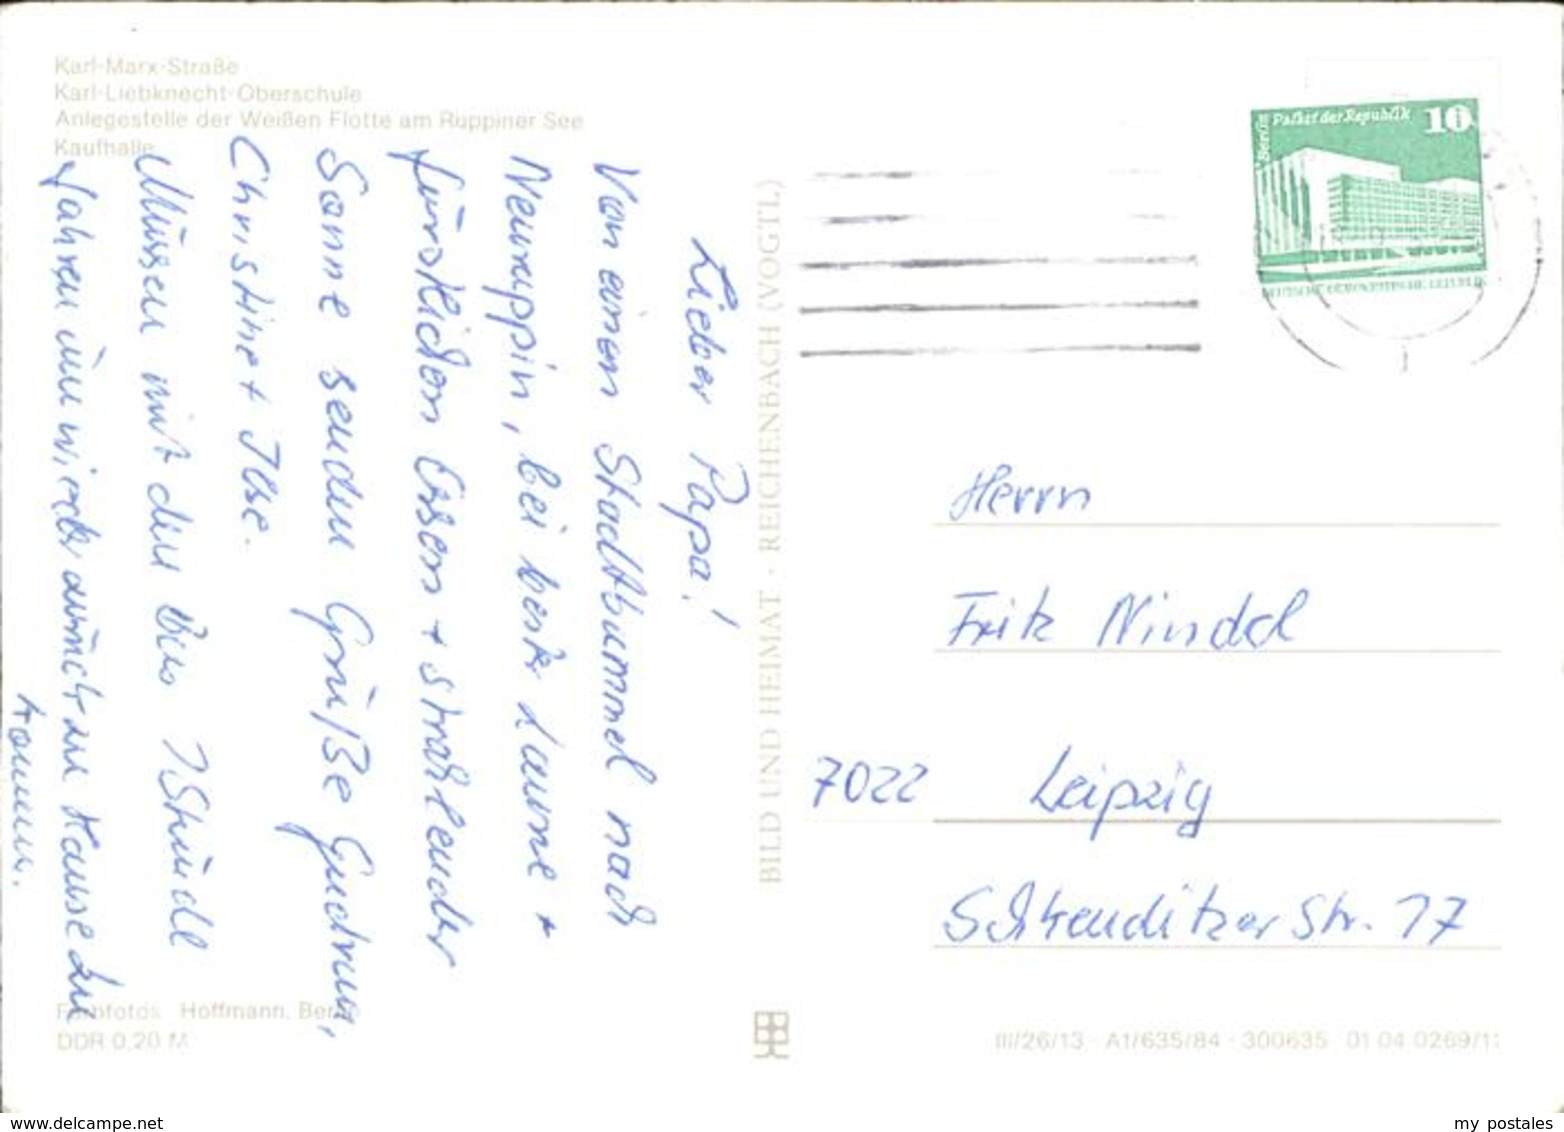 Karl-Marx-Straße
Karl-Liebknecht-Oberschule
Anlegestelle der Weißen Flotte am Ruppiner See
Kaufhalle
Lieber Papa!
Von einem Stadtbummel nach
Neuruppin, bei bester Laune +
fürstlichem Essen + strahlender
Sonne senden Grüße Gudrun,
Christine + Ilse.
Müssen mit dem Bus 1 Stunde
fahren um wieder zu Hause zu
kommen.
Farbfotos Hoffmann,
DDR 0,20 M
BILD UND HEIMAT · REICHENBACH (VOGTL)
Berlin Palast der Republik 10
DEUTSCHE DEMOKRATISCHE REPUBLIK
Herrn
Fritz Nindel
7022 Leipzig
Schkeuditzer Str. 17
III/26/13 · A1/635/84 · 300635 01 04 0269/11
www.delcampe.net
my postales